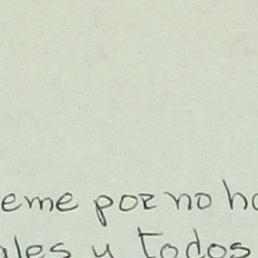 eme por no ho
ales y todos